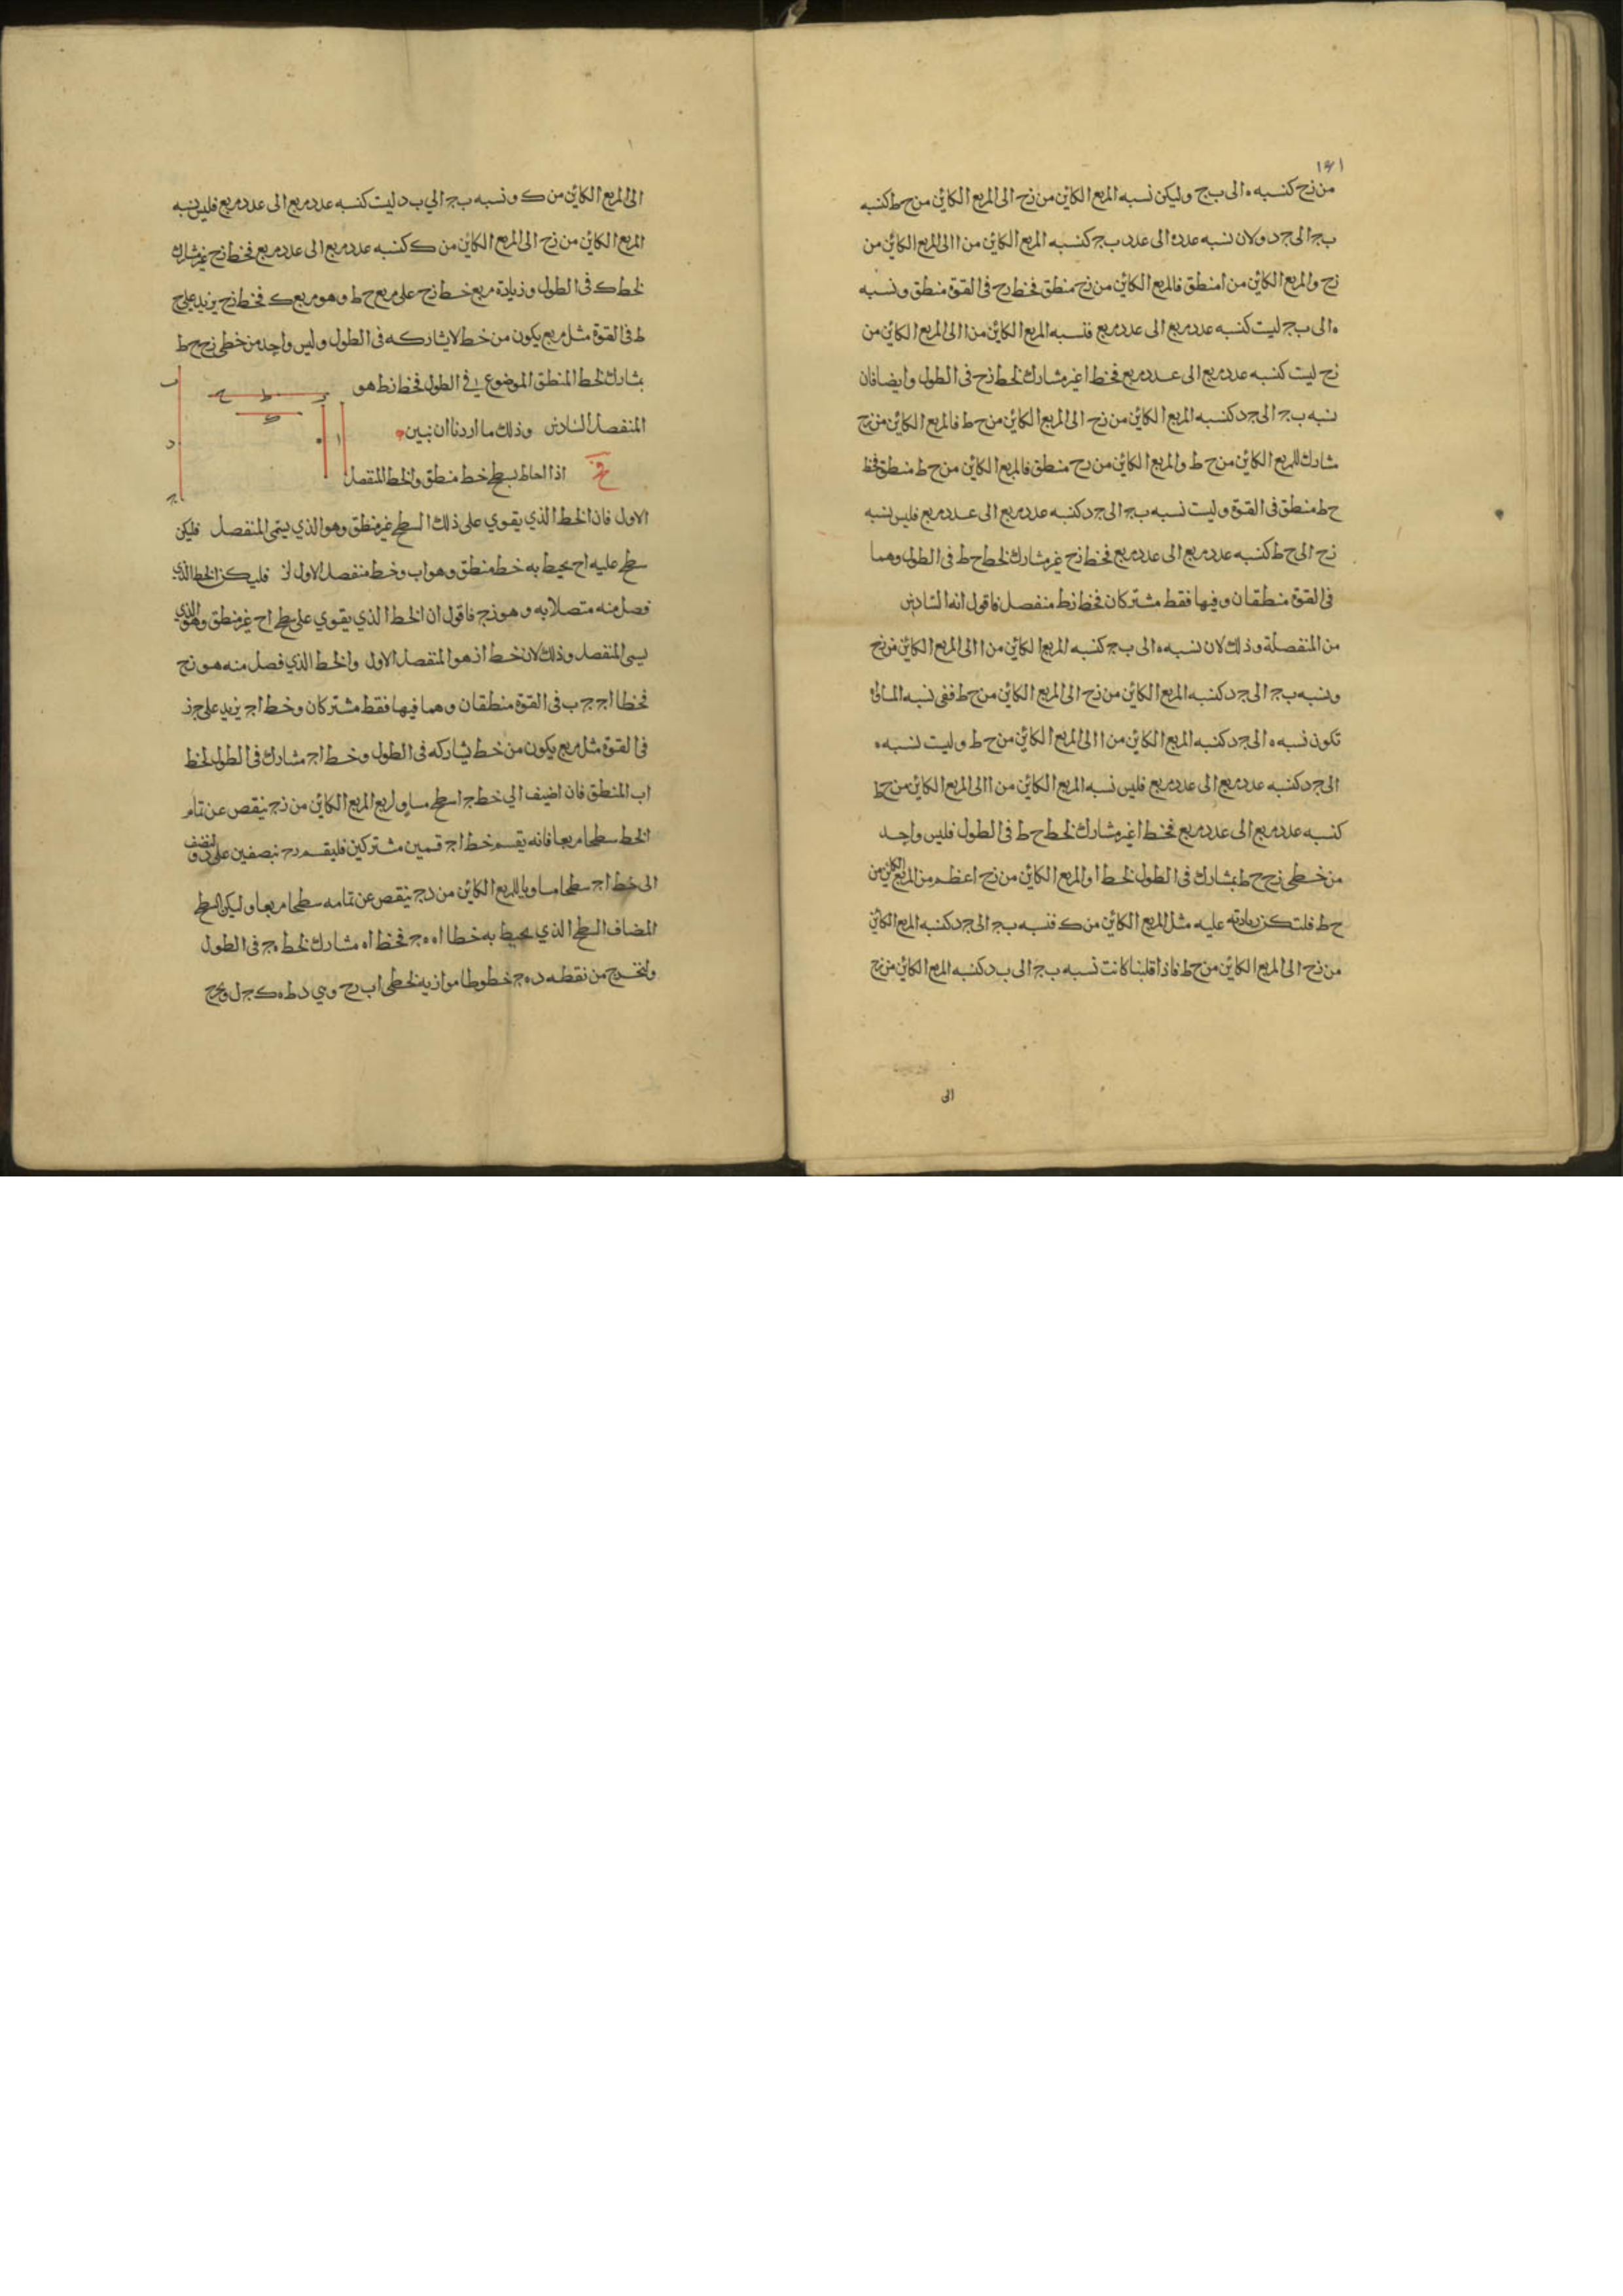 ١٤١
من زح كنسبه ه الى ب ج وليكن نسبه المربع الكاين من زح الى المربع الكاين من ح ط كنسبه
ب ج الى ج د ولان نسبه عدد ه الى عدد ب ج كنسبه المربع الكاين من ا الى المربع الكاين من
زح والمربع الكاين من ا منطق فالمربع الكاين من زح منطق فخط زح فى القوة منطق ونسبه
ه الى ب ج ليست كنسبه عدد مربع الى عدد مربع فنسبه المربع الكاين من ا الى المربع الكاين من
زح ليست كنسبه عدد مربع الى عدد مربع فخط ا غير مشارك لخط زح فى الطول وايضا فان
نسبه ب ج الى ج د كنسبه المربع الكاين من زح الى المربع الكاين من ح ط فالمربع الكاين من زح
مشارك للمربع الكاين من ح ط والمربع الكاين من زح منطق فالمربع الكاين من ح ط منطق فخط
ح ط منطق فى القوة وليست نسبه ب ج الى ج د كنسبه عدد مربع الى عدد مربع فليس نسبه
زح الى ح ط كنسبه عدد مربع الى عدد مربع فخط زح غير مشارك لخط ح ط فى الطول وهما
فى القوة منطقان وفيها فقط مشتركان فخط زط منفصل فاقول انه السادس
من المنفصلة وذلك لان نسبه ه الى ب ج كنسبه المربع الكاين من ا الى المربع الكاين من زح
ونسبه ب ج الى ج د كنسبه المربع الكاين من زح الى المربع الكاين من ح ط ففى نسبه المساواة
تكون نسبه ه الى ج د كنسبه المربع الكاين من ا الى المربع الكاين من ح ط وليست نسبه ه
الى ج د كنسبه عدد مربع الى عدد مربع فليس نسبه المربع الكاين من ا الى المربع الكاين من ح ط
كنسبه عدد مربع الى عدد مربع فخط ا غير مشارك لخط ح ط فى الطول فليس واحد
من خطى زح ح ط بمشارك فى الطول لخط ا والمربع الكاين من زح اعظم من المربع الكاين من
ح ط فلتكن زيادته عليه مثل المربع الكاين من ك فنسبه ب ج الى ج د كنسبه المربع الكاين
من زح الى المربع الكاين من ح ط فاذا قلبنا كانت نسبه ب ج الى ب د كنسبه المربع الكاين من زح
الى
الى المربع الكاين من ك ونسبه ب ج الي ب د ليست كنسبه عدد مربع الى عدد مربع فليس نسبه
المربع الكاين من زح الى المربع الكاين من ك كنسبه عدد مربع الى عدد مربع فخط زح غير مشارك
لخط ك فى الطول وزيادة مربع خط زح على مربع ح ط وهو مربع ك فخط زح يزيد على ح
ط فى القوة مثل مربع يكون من خط لا يشاركه فى الطول وليس واحد من خطى زح ح ط
بشارك لخط المنطق الموضوع فى الطول فخط زط هو
المنفصل السادس وذلك ما اردنا ان نبين
اذا احاط بسطح خط منطق والخط المنفصل
الاول فان الخط الذي يقوي على ذلك السطح غير منطق وهو الذي يسمى المنفصل فليكن
سطح عليه اح يحيط به خط منطق وهو اب وخط منفصل الاول از فليكن الخط الذي
فصل منه متصلا به وهو زج فاقول ان الخط الذي يقوي على سطح اح غير منطق وهو الذي
يسمى المنفصل وذلك لان خط از هو المنفصل الاول والخط الذي فصل منه هو زج
فخطا اج ج ب فى القوة منطقان وهما فيها فقط مشتركان وخط اج يزيد على ج ز
فى القوة مثل مربع يكون من خط يشاركه فى الطول وخط اج مشارك فى الطول لخط
اب المنطق فان اضيف الي خط ج ا سطح مساو لربع المربع الكاين من زج ينقص عن تمام
الخط سطحا مربعا فانه يقسم خط اج قسمين مشتركين فليقسم زج بنصفين على د ولنضف
الى خط اج سطحا مساويا للمربع الكاين من دج ينقص عن تمامه سطحا مربعا وليكن السطح
المضاف السطح الذي يحيط به خطا اه ه ج فخط اه مشارك لخط ه ج فى الطول
ولنخرج من نقطه د ه ج خطوطا موازيه لخطى اب زح وهي د ط ه ك ج ل ونخرج
ب
د
ج
ز ط ح
ك
ا
ه